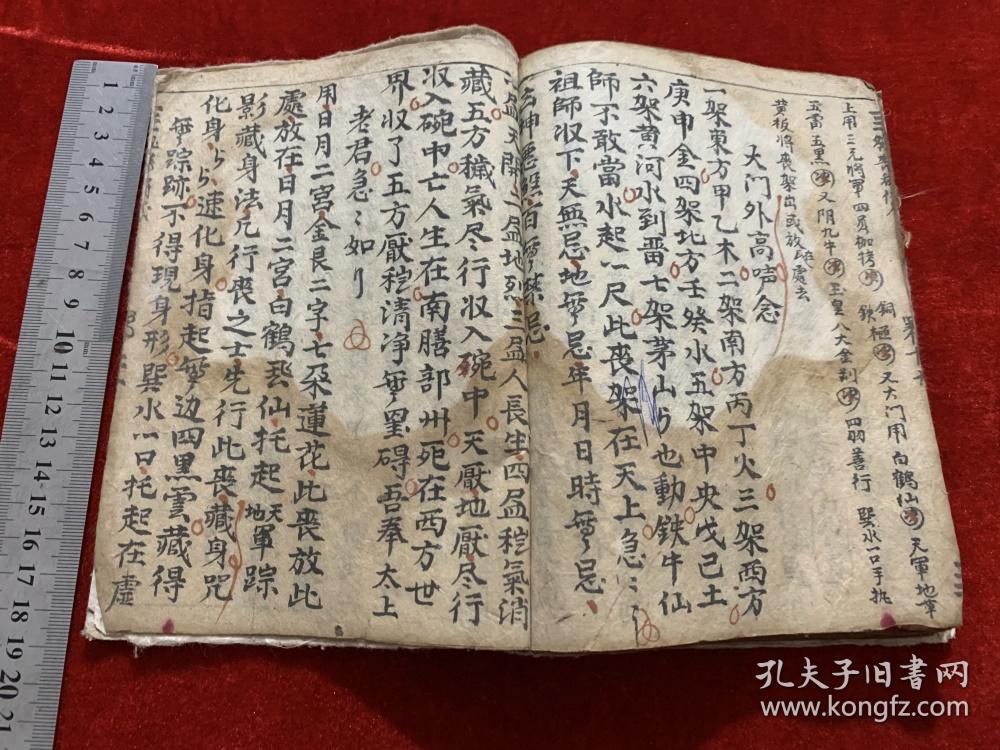 上用三元將軍四肩枷拷 銅
五雷五黑 又阴九牛 玉皇八大金剛 四羽善行 巽水一口手挑
黄板將喪架出或放 處去
又大门用白鶴仙 天軍地軍
大门外高声念
一架東方甲乙木二架南方丙丁火三架西方
庚申金四架北方壬癸水五架中央戊己土
六架黄河水到雷七架茅山 也動鉄牛仙
師不敢當水起一尺此喪架在天上急〻
祖師収下天無忌地無忌年月日時無忌
百無禁忌
盆天開二盆地烈三盆人長生四盆穢氣消
藏五方穢氣尽行収入碗中天厭地厭尽行
収入碗中亡人生在南膳部州死在西方世
界収了五方厭穢清净無罣碍吾奉太上
老君急〻如
用日月二宮金良二字七朶蓮花此喪放此
處放在日月二宮白鶴 仙托起天地軍踪
影藏身法凡行喪之士先行此喪藏身咒
化身 速化身指起無边四黑雲藏得
無踪跡不得現身形巽水一口托起在虛
1
2
3
4
5
6
7
8
9
10
11
12
13
14
15
16
17
18
19
20
21
孔夫子旧書网
www.kongfz.com